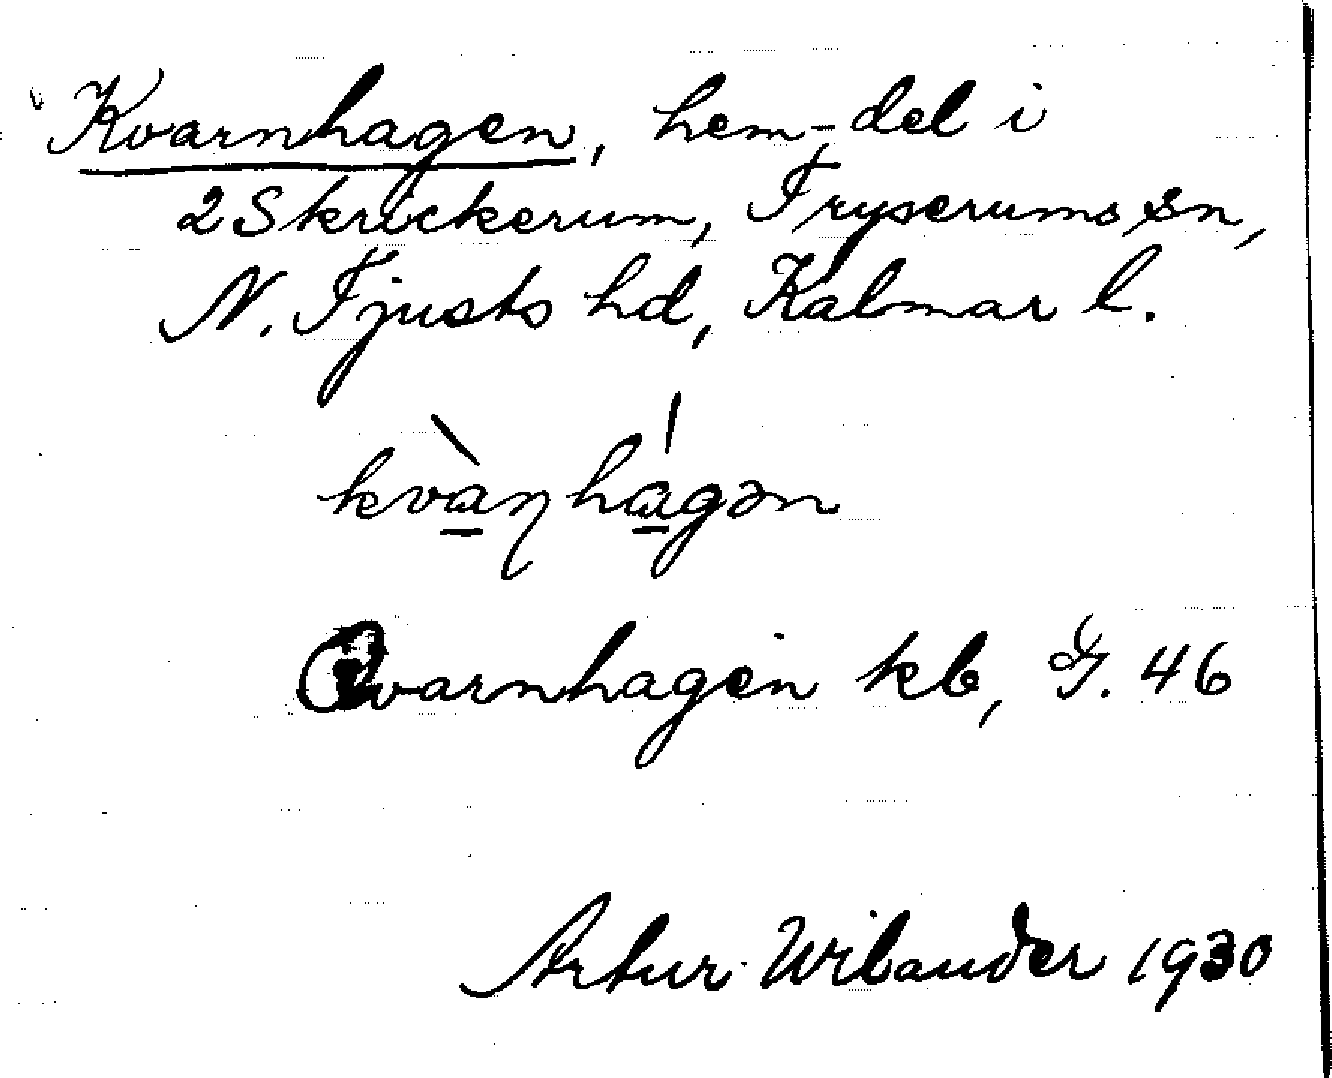 Kvarnhagen, hem.del i
2 Skrickerum, Tryserums sn,
N. Tjusts hd, Kalmar l.
kvàṇhágən
Qvarnhagen kb, G. 46
Artur Wilander 1930